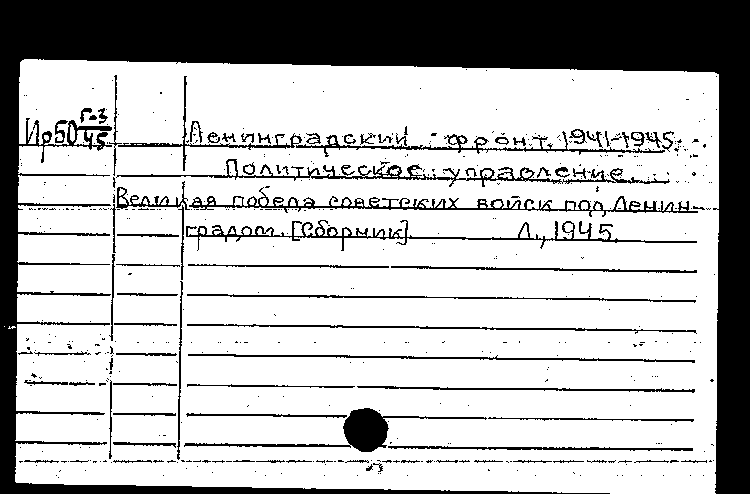 Ир50 Г-3/45
Ленинградский фронт. 1941-1945.
Политическое управление.
Великая победа советских войск под Ленин-
градом. [Сборник]. Л., 1945.